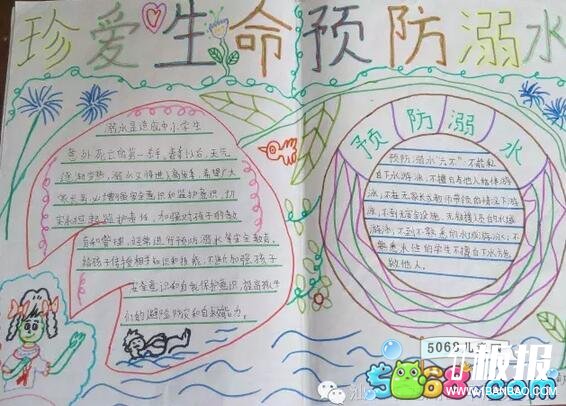 珍爱生命预防溺水
溺水是造成中小学生
意外死亡的第一杀手。春季以后,天气
逐渐变热,溺水又将进入高发季,希望广大
家长要必增强安全意识和监护意识,切
实承担起监护责任,加强对孩子的教
育和管理,经常进行预防溺水等安全教育,
给孩子传授相关知识和技能,不断加强孩子
安全意识和自我保护意识,提高孩子
们的避险防灾和自救能力。
预防溺水
预防溺水"六不":不能私
自下水游泳;不擅自与他人结伴游
泳;不在无家长或教师带领的情况下游
泳;不到无安全设施、无救援人员的水域
游泳;不到不熟悉的水域游泳;不
熟悉水性的学生不擅自下水施
救他人。
5068儿童网
5068.com
板报
WWW.JBANBAO.COM